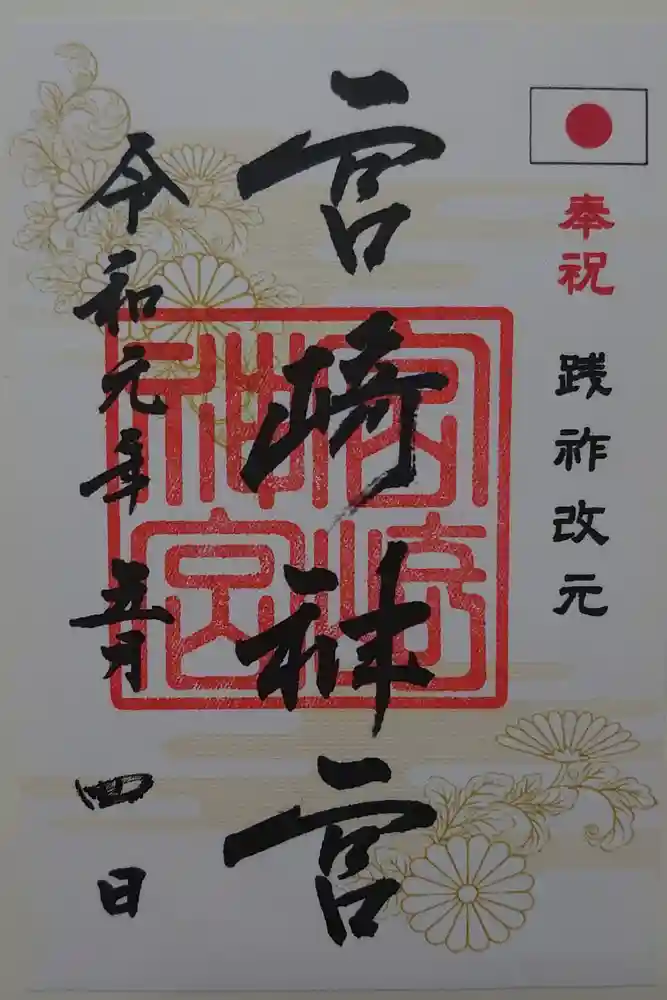 奉祝 践祚改元
宮崎神宮
宮崎神宮
令和元年五月四日